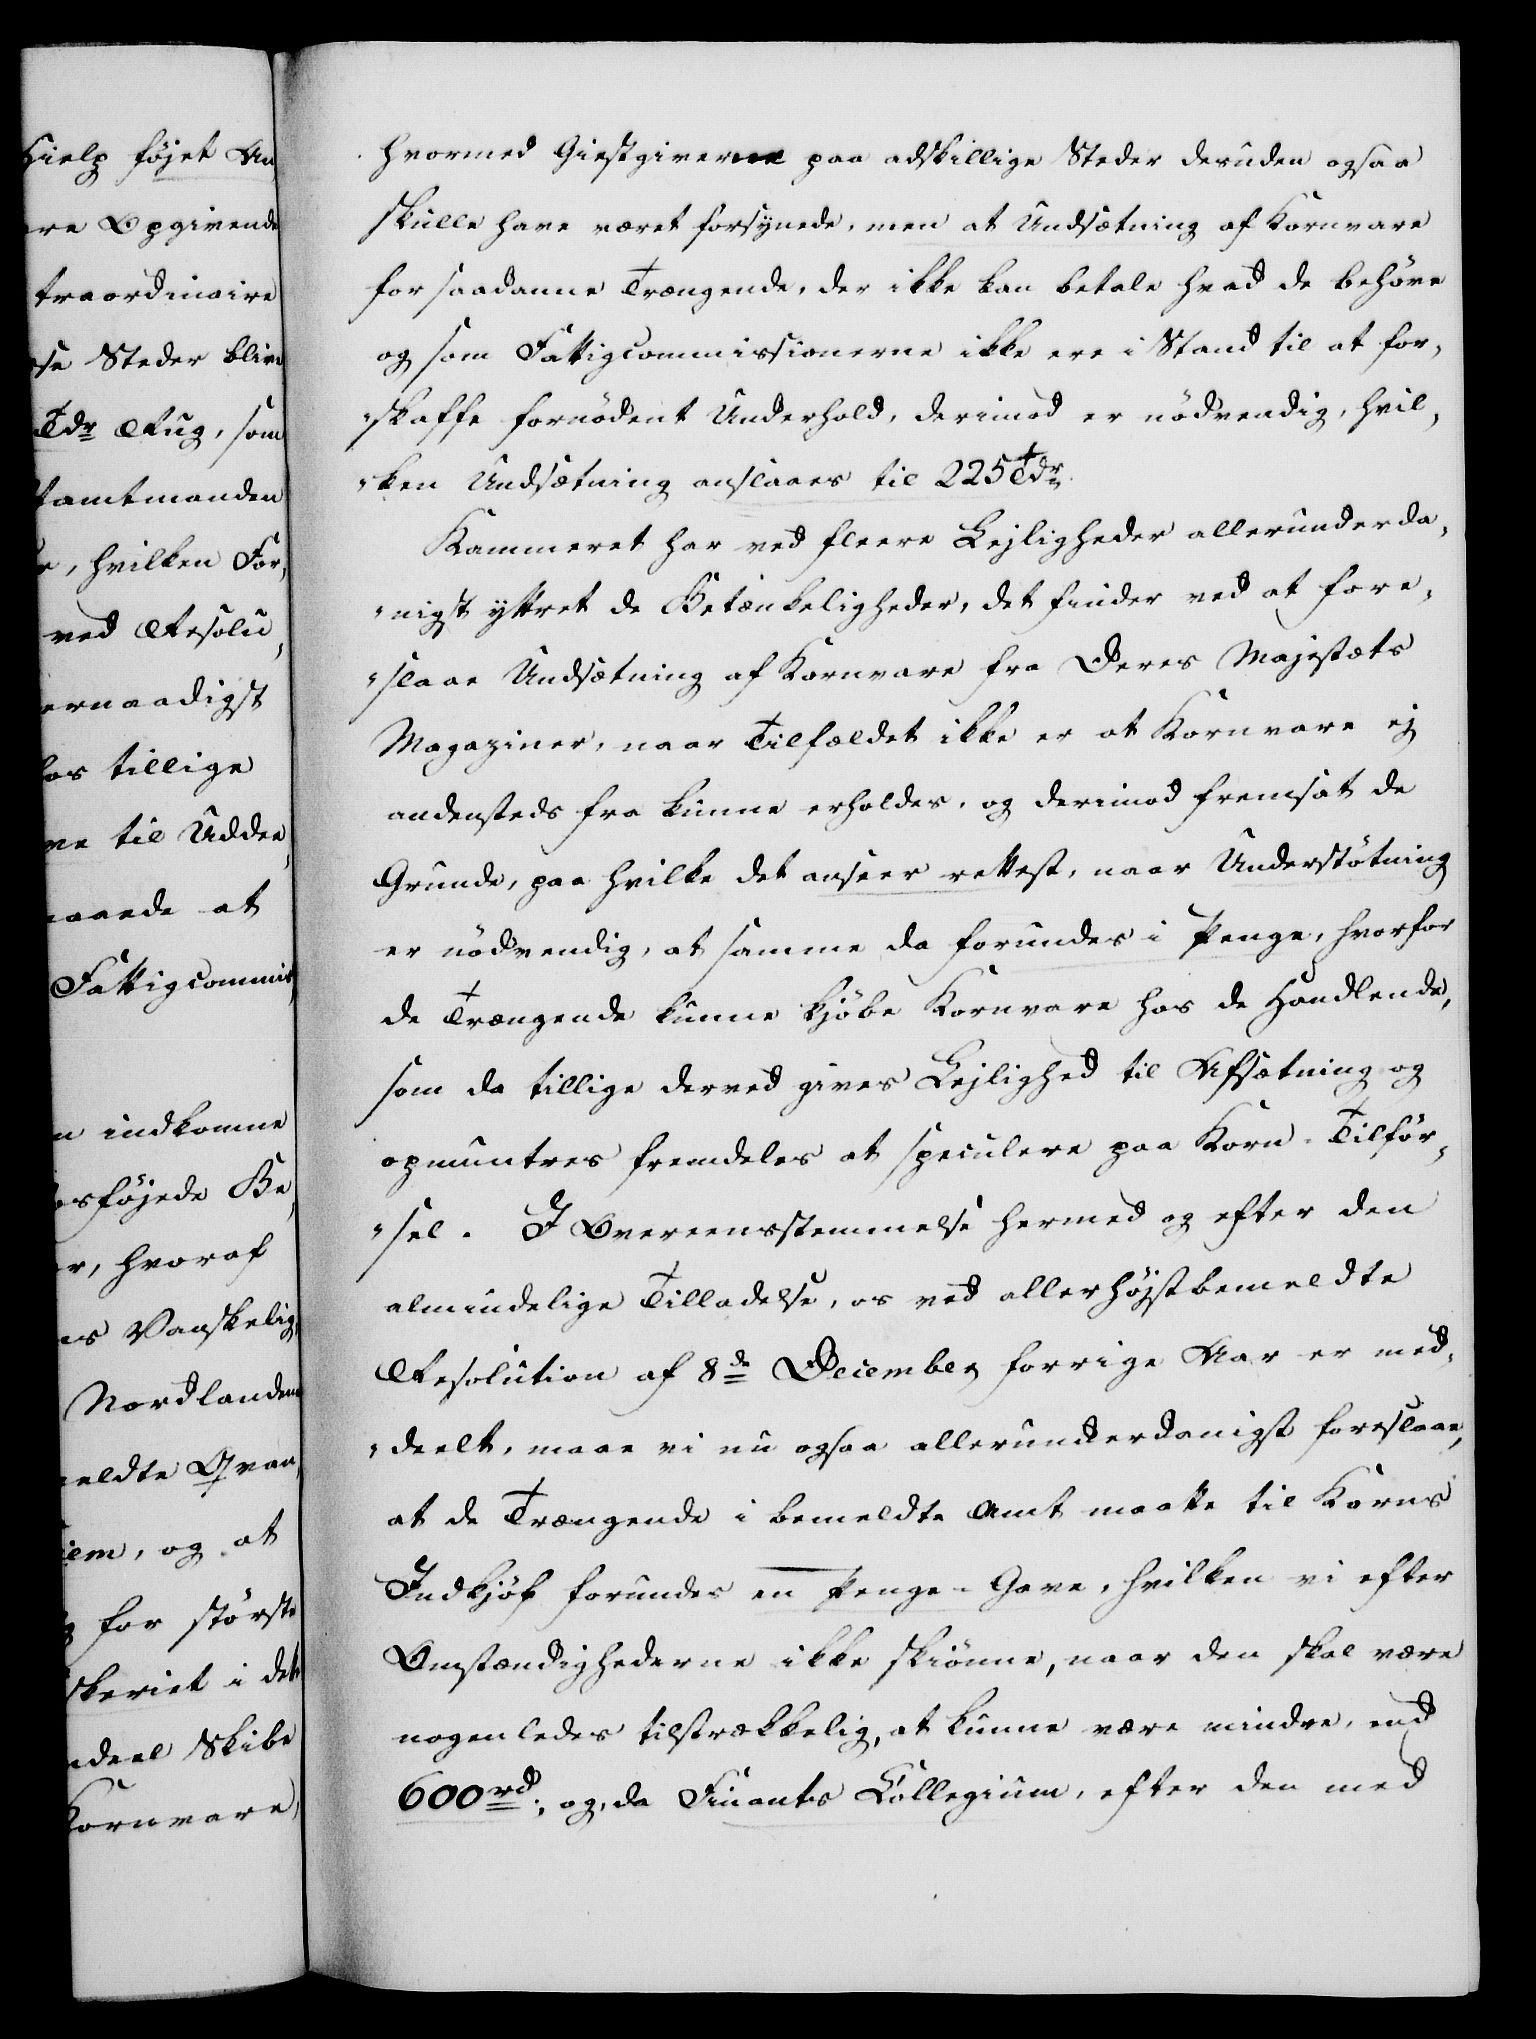 Hielp föjet An
re Opgivende
traordinaire
se Steder blive
Tdr Rug, som
tamtmanden
r, hvilken For„
ved Resolu„
ernaadigst
os tillige
ve til Uddee„
maade at
Fattigcommis„
n indkomne
sföjede Be„
r, hvoraf
es Vanskelig„
Nordlandene
eldte Qvan„
iem, og at
g for störste
skeriet i det
ndeel Skibe
Kornvare,
hvormed Giestgiverne paa adskillige Steder desuden ogsaa
skulle have været forsynede, men at Undsætning af Kornvare
for saadanne Trængende, der ikke kan betale hvad de behöve
og som Fattigcommissionerne ikke ere i Stand til at for„
„skaffe fornödent Underhold, derimod er nödvendig, hvil„
„ken Undsætning anslaaes til 225 Tdr.
Kammeret har ved fleere Lejligheder allerunderda„
„nigst yttret de Betænkeligheder, det finder ved at fore„
„slaae Undsætning af Kornvare fra Deres Majestæts
Magaziner, naar Tilfældet ikke er at Kornvare ej
andensteds fra kunne erholdes, og derimod fremsat de
Grunde, paa hvilke det anseer rettest, naar Understötning
er nödvendig, at samme da forundes i Penge, hvorfor
de Trængende kunne kjöbe Kornvare hos de Handlende,
som da tillige derved gives Lejlighed til Afsætning og
opmuntres fremdeles at speculere paa Korn-Tilför„
„sel. I Overeensstemmelse hermed og efter den
almindelige Tilladelse, os ved allerhöjstbemeldte
Resolution af 8de December forrige Aar er med„
„deelt, maae vi nu ogsaa allerunderdanigst foreslaae,
at de Trængende i bemeldte Amt maatte til Korns
Indkjöb forundes en Penge-Gave, hvilken vi efter
Omstændighederne ikke skiönne, naar den skal være
nogenledes tilstrækkelig, at kunne være mindre, end
600 rd; og, da Finants Collegium, efter den med